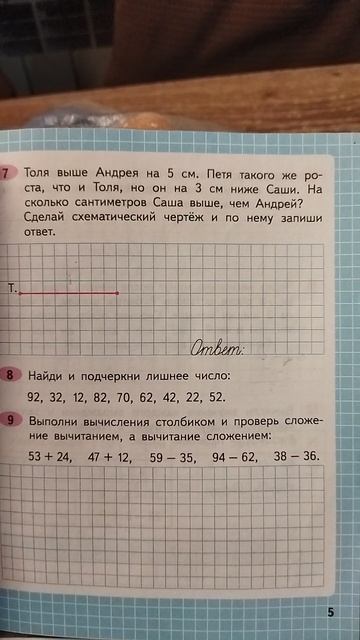 7 Толя выше Андрея на 5 см. Петя такого же ро-
ста, что и Толя, но он на 3 см ниже Саши. На
сколько сантиметров Саша выше, чем Андрей?
Сделай схематический чертёж и по нему запиши
ответ.
Т.
Ответ:
8 Найди и подчеркни лишнее число:
92, 32, 12, 82, 70, 62, 42, 22, 52.
9 Выполни вычисления столбиком и проверь сложе-
ние вычитанием, а вычитание сложением:
53 + 24, 47 + 12, 59 − 35, 94 − 62, 38 − 36.
5